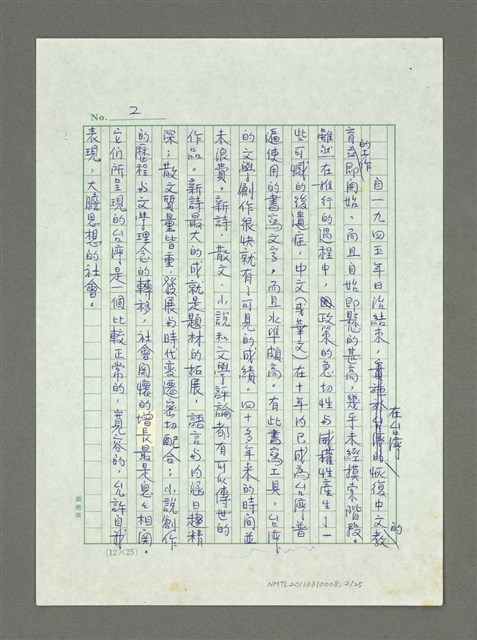 No. 2
自一九四五年日治結束，在台灣的恢復中文教
育的工作立即開始，而且自始即懸的甚高，幾乎未經摸索階段。
雖然在推行的過程中，因政策的急切性与威權性產生了一
些可憾的後遺症，中文（或華文）在十年內已成為台灣普
遍使用的書寫文字，而且水準頗高。有此書寫工具，台灣
的文學創作很快就有了可見的成績。四十多年來的時間並
未浪費，新詩、散文、小說和文學評論都有可以傳世的
作品。新詩最大的成就是題材的拓展，語言与內涵日趨精
深；散文質量皆重，發展与時代變遷密切配合；小說創作
的歷程与文學理念的轉移，社會関懷的增長最是息息相関。
它們所呈現的台灣是一個比較正常的，寬容的，允許自我
表現，大膽思想的社會。
(12×25)
NMTL20110310008, 2/25